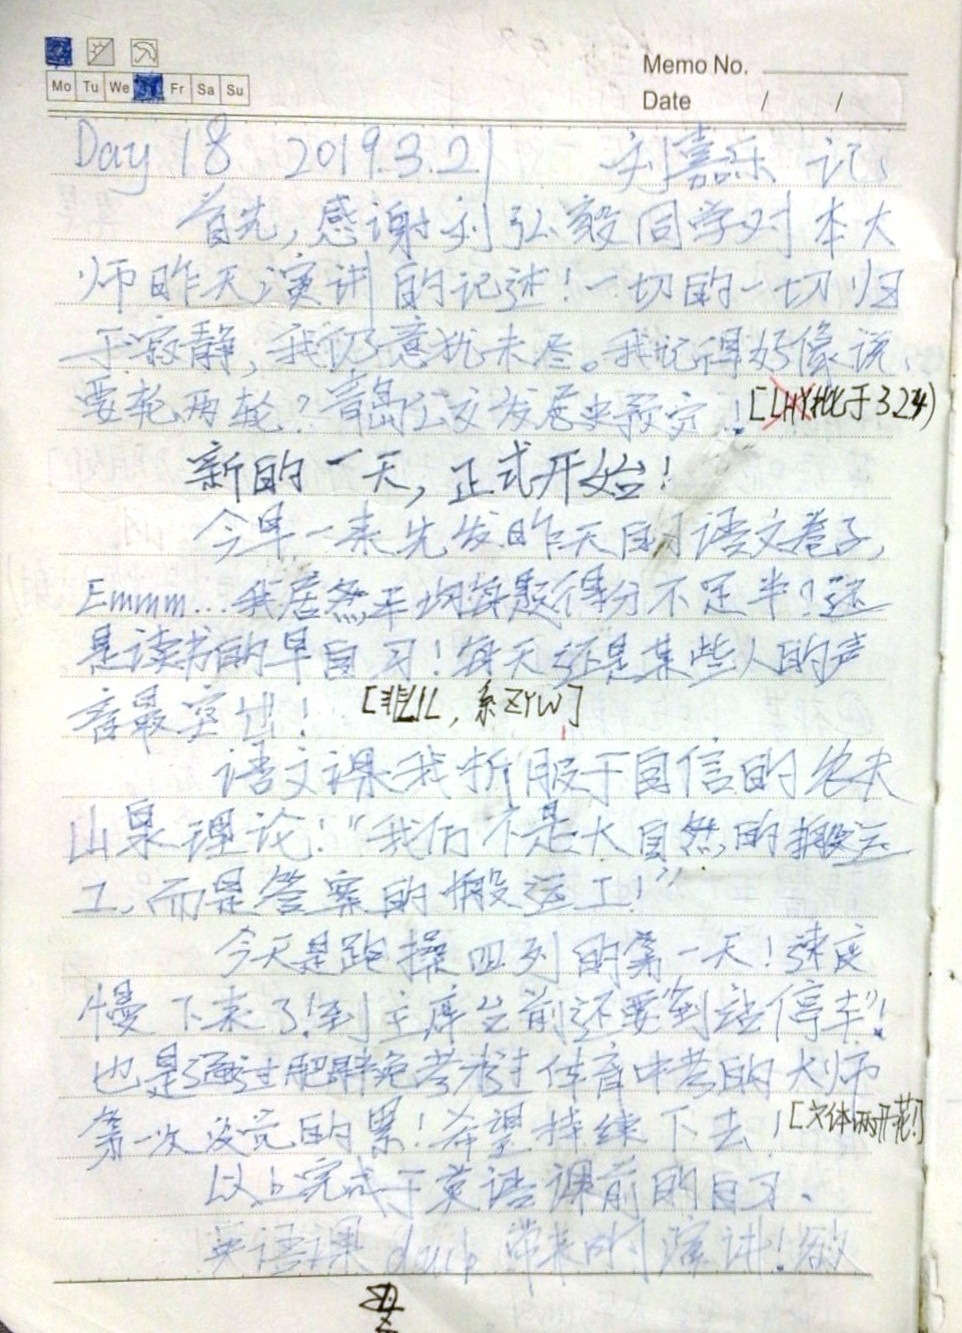 Mo Tu We Fr Sa Su
Memo No.
Date / /
Day 18 2019.3.21 刘嘉乐 记
首先,感谢刘弘毅同学对本大
师昨天演讲的记述!一切的一切归
于寂静,我仍意犹未尽。我记得好像说
要轮两轮?青岛公交发展史预定!
[LHY批于324)
新的一天,正式开始!
今早一来先发昨天自习语文卷子,
Emmm...我居然平均每题得分不足半?还
是读书的早自习!每天还是某些人的声
音最突出!
[非LJL,系ZYW]
语文课我折服于自信的农夫
山泉理论!“我们不是大自然的搬运
工,而是答案的搬运工!”
今天是跑操四列的第一天!速度
慢下来了!到主席台前还要“到站停车”!
也是通过肥胖免考考过体育中考的大师
第一次没觉的累!希望持续下去!
[文体两开花!]
以上完成于英语课前的自习、
英语课 带来的演讲!